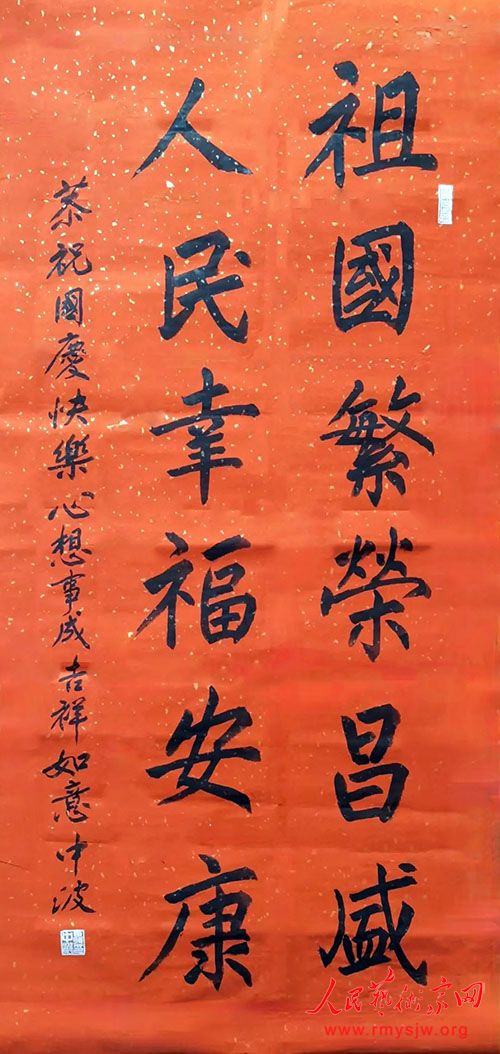 祖國繁榮昌盛
人民幸福安康
恭祝國慶快樂心想事成吉祥如意中波
人民藝術家网
www.rmysjw.org